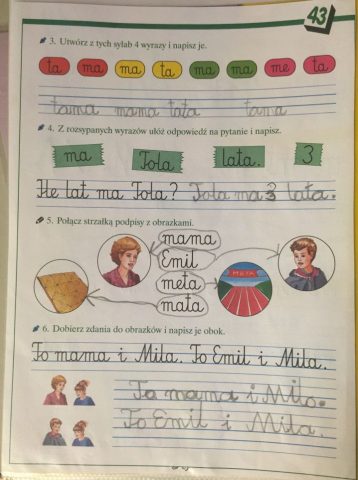 43
3. Utwórz z tych sylab 4 wyrazy i napisz je.
ta ma ma ta ma ma me ta
tama mama tata tama
4. Z rozsypanych wyrazów ułóż odpowiedź na pytanie i napisz.
ma Tola lata. 3
Ile lat ma Tola? Tola ma 3 lata.
5. Połącz strzałką podpisy z obrazkami.
mama
Emil
meta
META
mata
6. Dobierz zdania do obrazków i napisz je obok.
To mama i Mila. To Emil i Mila.
To mama i Mila.
To Emil i Mila.